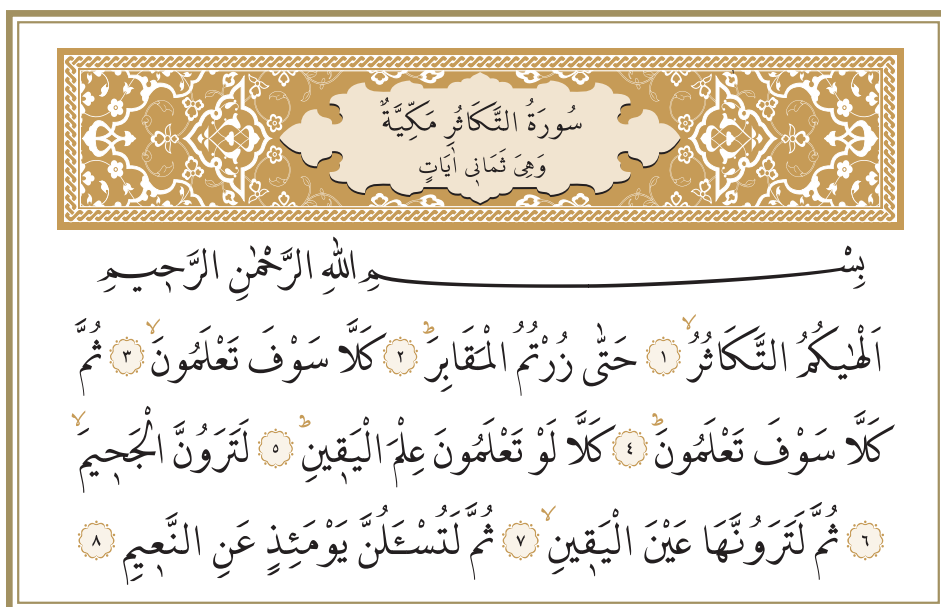 سُورَةُ التَّكَاثُرِ مَكِّيَّةٌ
وَهِيَ ثَمَانِي اٰيَاتٍ
بِسْمِ اللّٰهِ الرَّحْمٰنِ الرَّحِيمِ
اَلْهٰيكُمُ التَّكَاثُرُۙ ١ حَتّٰى زُرْتُمُ الْمَقَابِرَۜ ٢ كَلَّا سَوْفَ تَعْلَمُونَۙ ٣ ثُمَّ
كَلَّا سَوْفَ تَعْلَمُونَۜ ٤ كَلَّا لَوْ تَعْلَمُونَ عِلْمَ الْيَقِينِۜ ٥ لَتَرَوُنَّ الْجَحِيمَۙ
٦ ثُمَّ لَتَرَوُنَّهَا عَيْنَ الْيَقِينِۙ ٧ ثُمَّ لَتُسْـَٔلُنَّ يَوْمَئِذٍ عَنِ النَّعِيمِ ٨